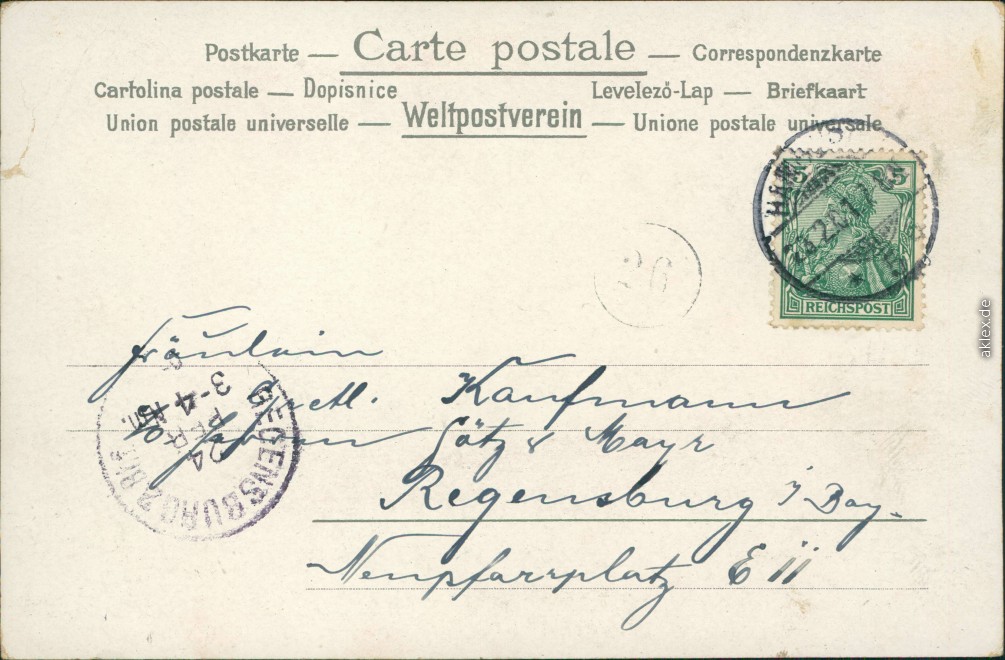 Postkarte — Carte postale — Correspondenzkarte
Cartolina postale — Dopisnice Levelező-Lap — Briefkaart
Union postale universelle — Weltpostverein — Unione postale universale
5 5
REICHSPOST
26
Fräulein
Kaufmann
Götz & Mayr
Regensburg i/Bay.
Neupfarrplatz E
REGENSBURG
24
FEB
3-4 Nm.
aklex.de